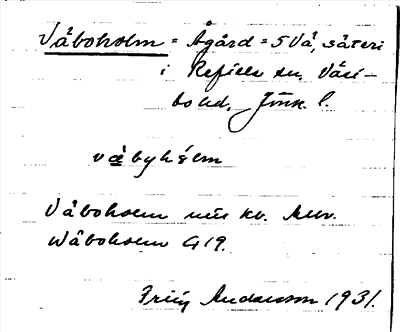 Våboholm = Ågård = 5 Vå, säteri
i Reftele sn. Väst-
bo hd. Jönk. l.
våbyhólm
Våboholm nu kv.
Wåboholm G 19.
Andersson 1931.